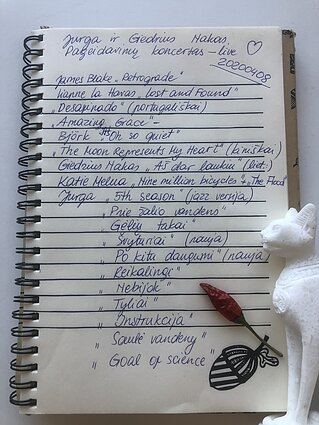 Jurga ir Giedrius Nakas
Pageidavimų koncertas – live
20200408
James Blake „Retrograde"
Lianne La Havas „Lost and Found"
„Desafinado" (portugališkai)
„Amazing Grace" –
Björk „It's Oh so quiet"
„The Moon Represents My Heart" (kiniškai)
Giedrius Nakas „Aš dar lauksiu" (liet.)
Katie Melua „Nine million bicycles" + „The Flood"
Jurga „5th season (jazz versija)
„Prie žalio vandens"
„Gėlių takai"
„Švyturiai" (nauja)
„Po kitu dangumi" (nauja)
„Reikalingi"
„Nebijok"
„Tyliai"
„Instrukcija"
„Saulė vandeny"
„Goal of science"